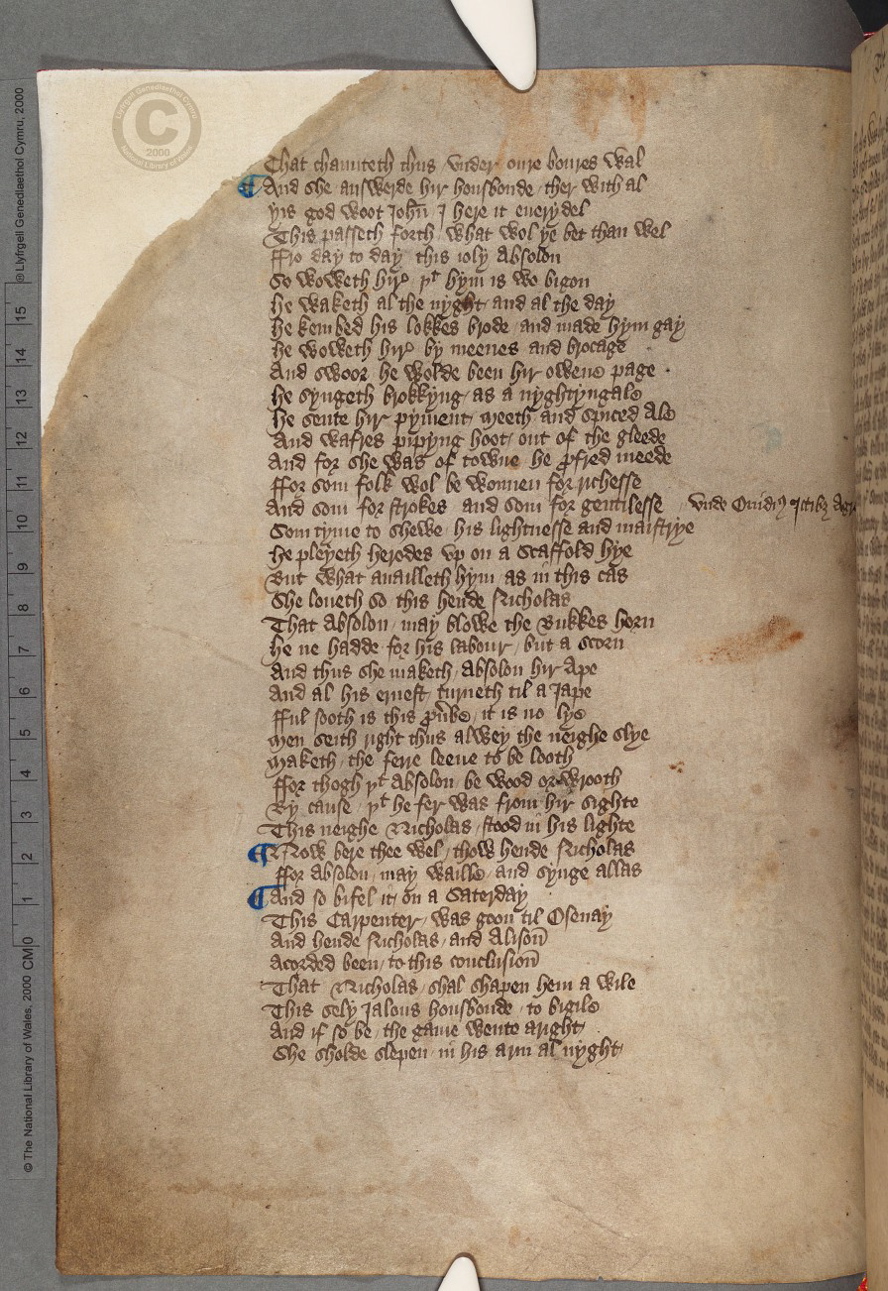 That chaunteth thus vnder oure boures wal
And she answerde hir housbonde / ther with al
yis god woot Iohn̄ I here it euerydel
This passeth forth / what wol ye bet than wel
ffro day to day / this ioly Absolon
So woweth hire / þt hym is wo bigon
he waketh al the nyght / and al the day
he kembed his lokkes brode / and made hym gay
he woweth hire / by meenes and brocage
And swoor / he wolde been hir owene page
he syngeth brokkyng / as a nyghtyngale
he sente hir pyment / Meeth and spiced Ale
And wafres pipyng hoot / out of the gleede
And for she was of towne he ꝓfred meede
ffor som folk wol be wonnen for richesse
And som for strokes and som for gentilesse
vnde Ouidius
Som tyme to shewe / his lightnesse and maistrye
he pleyeth herodes vp on a Scaffold hye
But what auailleth hym as in this cas
She loueth so this hende Nicholas
That Absolon / may blowe the Bukkes horn
he ne hadde for his labour / but a scorn
And thus she maketh / Absolon hir Ape
And al his ernest / turneth til a Iape
fful sooth is this ꝓuerbe / it is no lye
Men seith right thus alwey the neighe slye
Maketh / the ferre leeue to be looth
ffor thogh þt Absolon / be wood or wrooth
By cause / þt he fer was from hir sighte
This neighe Nicholas / stood in his lighte
Now bere thee wel / thow hende Nicholas
ffor Absolon / may waille / and synge allas
And so bifel it / on a Saterday
This Carpenter / was goon til Osenay
And hende Nicholas / and Alison̄
Acorded been / to this conclusion̄
That Nicholas / shal shapen hem a wile
This sely Ialous housbonde / to bigile
And if so be / the game wente aright /
She sholde slepen / in his arm al nyght /
© Llyfrgell Genedlaethol Cymru, 2000
15
14
13
12
11
10
9
8
7
6
5
4
3
2
1
CM 0
© The National Library of Wales, 2000
Llyfrgell Genedlaethol Cymru
C
2000
National Library of Wales